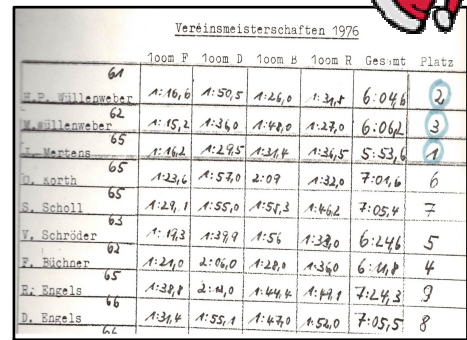 Vereinsmeisterschaften 1976
100m F 100m D 100m B 100m R Gesamt Platz
61
H.P. Wüllenweber 1:16,6 1:50,5 1:26,0 1:31,5 6:04,6 2
62
M. Wüllenweber 1:15,2 1:36,0 1:48,0 1:27,0 6:06,2 3
65
Mertens 1:16,2 1:29,5 1:31,4 1:36,5 5:53,6 1
65
O. Korth 1:23,6 1:57,0 2:09 1:32,0 7:01,6 6
65
S. Scholl 1:29,1 1:55,0 1:55,3 1:46,2 7:05,4 7
63
V. Schröder 1:19,3 1:39,9 1:56 6:24,6 5
62
F. Büchner 1:21,0 2:06,0 1:28,0 1:36,0 4
65
R. Engels 1:38,8 1:44,4 1:49,1 7:24,3 9
66
D. Engels 1:31,4 1:55,1 1:47,0 1:52,0 7:05,5 8